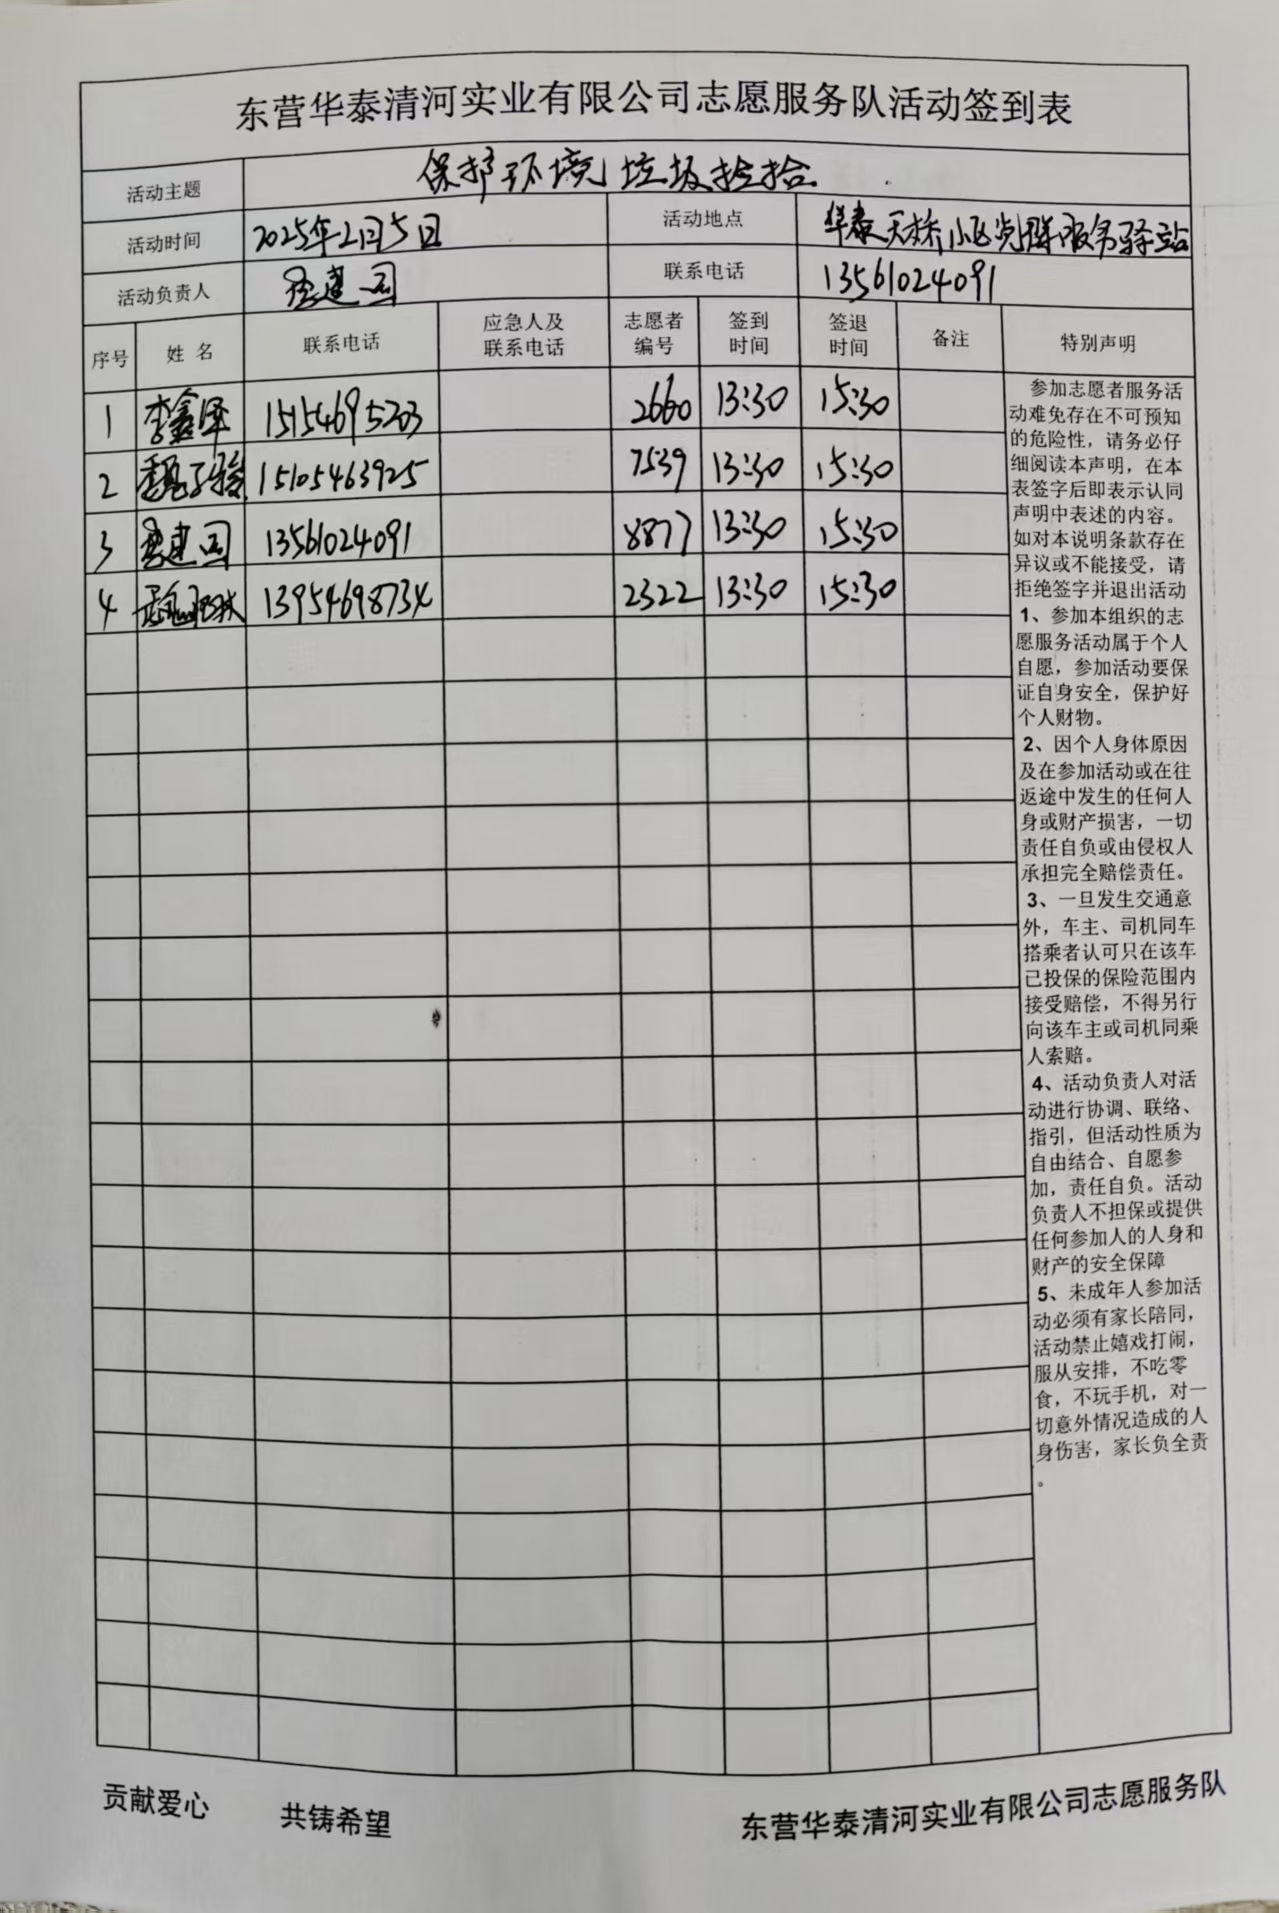 东营华泰清河实业有限公司志愿服务队活动签到表
活动主题 保护环境 垃圾捡拾
活动时间 2025年2月5日 活动地点 华泰天桥小区党群服务驿站
活动负责人 建司 联系电话 13561024091
序号 姓 名 联系电话 应急人及联系电话 志愿者编号 签到时间 签退时间 备注 特别声明
1 李鑫泽 15154695203 2660 13:30 15:30
2 15105463925 7539 13:30 15:30
3 建司 13561024091 8877 13:30 15:30
4 13954698734 2322 13:30 15:30
参加志愿者服务活
动难免存在不可预知
的危险性，请务必仔
细阅读本声明，在本
表签字后即表示认同
声明中表述的内容。
如对本说明条款存在
异议或不能接受，请
拒绝签字并退出活动
1、参加本组织的志
愿服务活动属于个人
自愿，参加活动要保
证自身安全，保护好
个人财物。
2、因个人身体原因
及在参加活动或在往
返途中发生的任何人
身或财产损害，一切
责任自负或由侵权人
承担完全赔偿责任。
3、一旦发生交通意
外，车主、司机同车
搭乘者认可只在该车
已投保的保险范围内
接受赔偿，不得另行
向该车主或司机同乘
人索赔。
4、活动负责人对活
动进行协调、联络、
指引，但活动性质为
自由结合、自愿参
加，责任自负。活动
负责人不担保或提供
任何参加人的人身和
财产的安全保障
5、未成年人参加活
动必须有家长陪同，
活动禁止嬉戏打闹，
服从安排，不吃零
食，不玩手机，对一
切意外情况造成的人
身伤害，家长负全责
。
贡献爱心 共铸希望 东营华泰清河实业有限公司志愿服务队